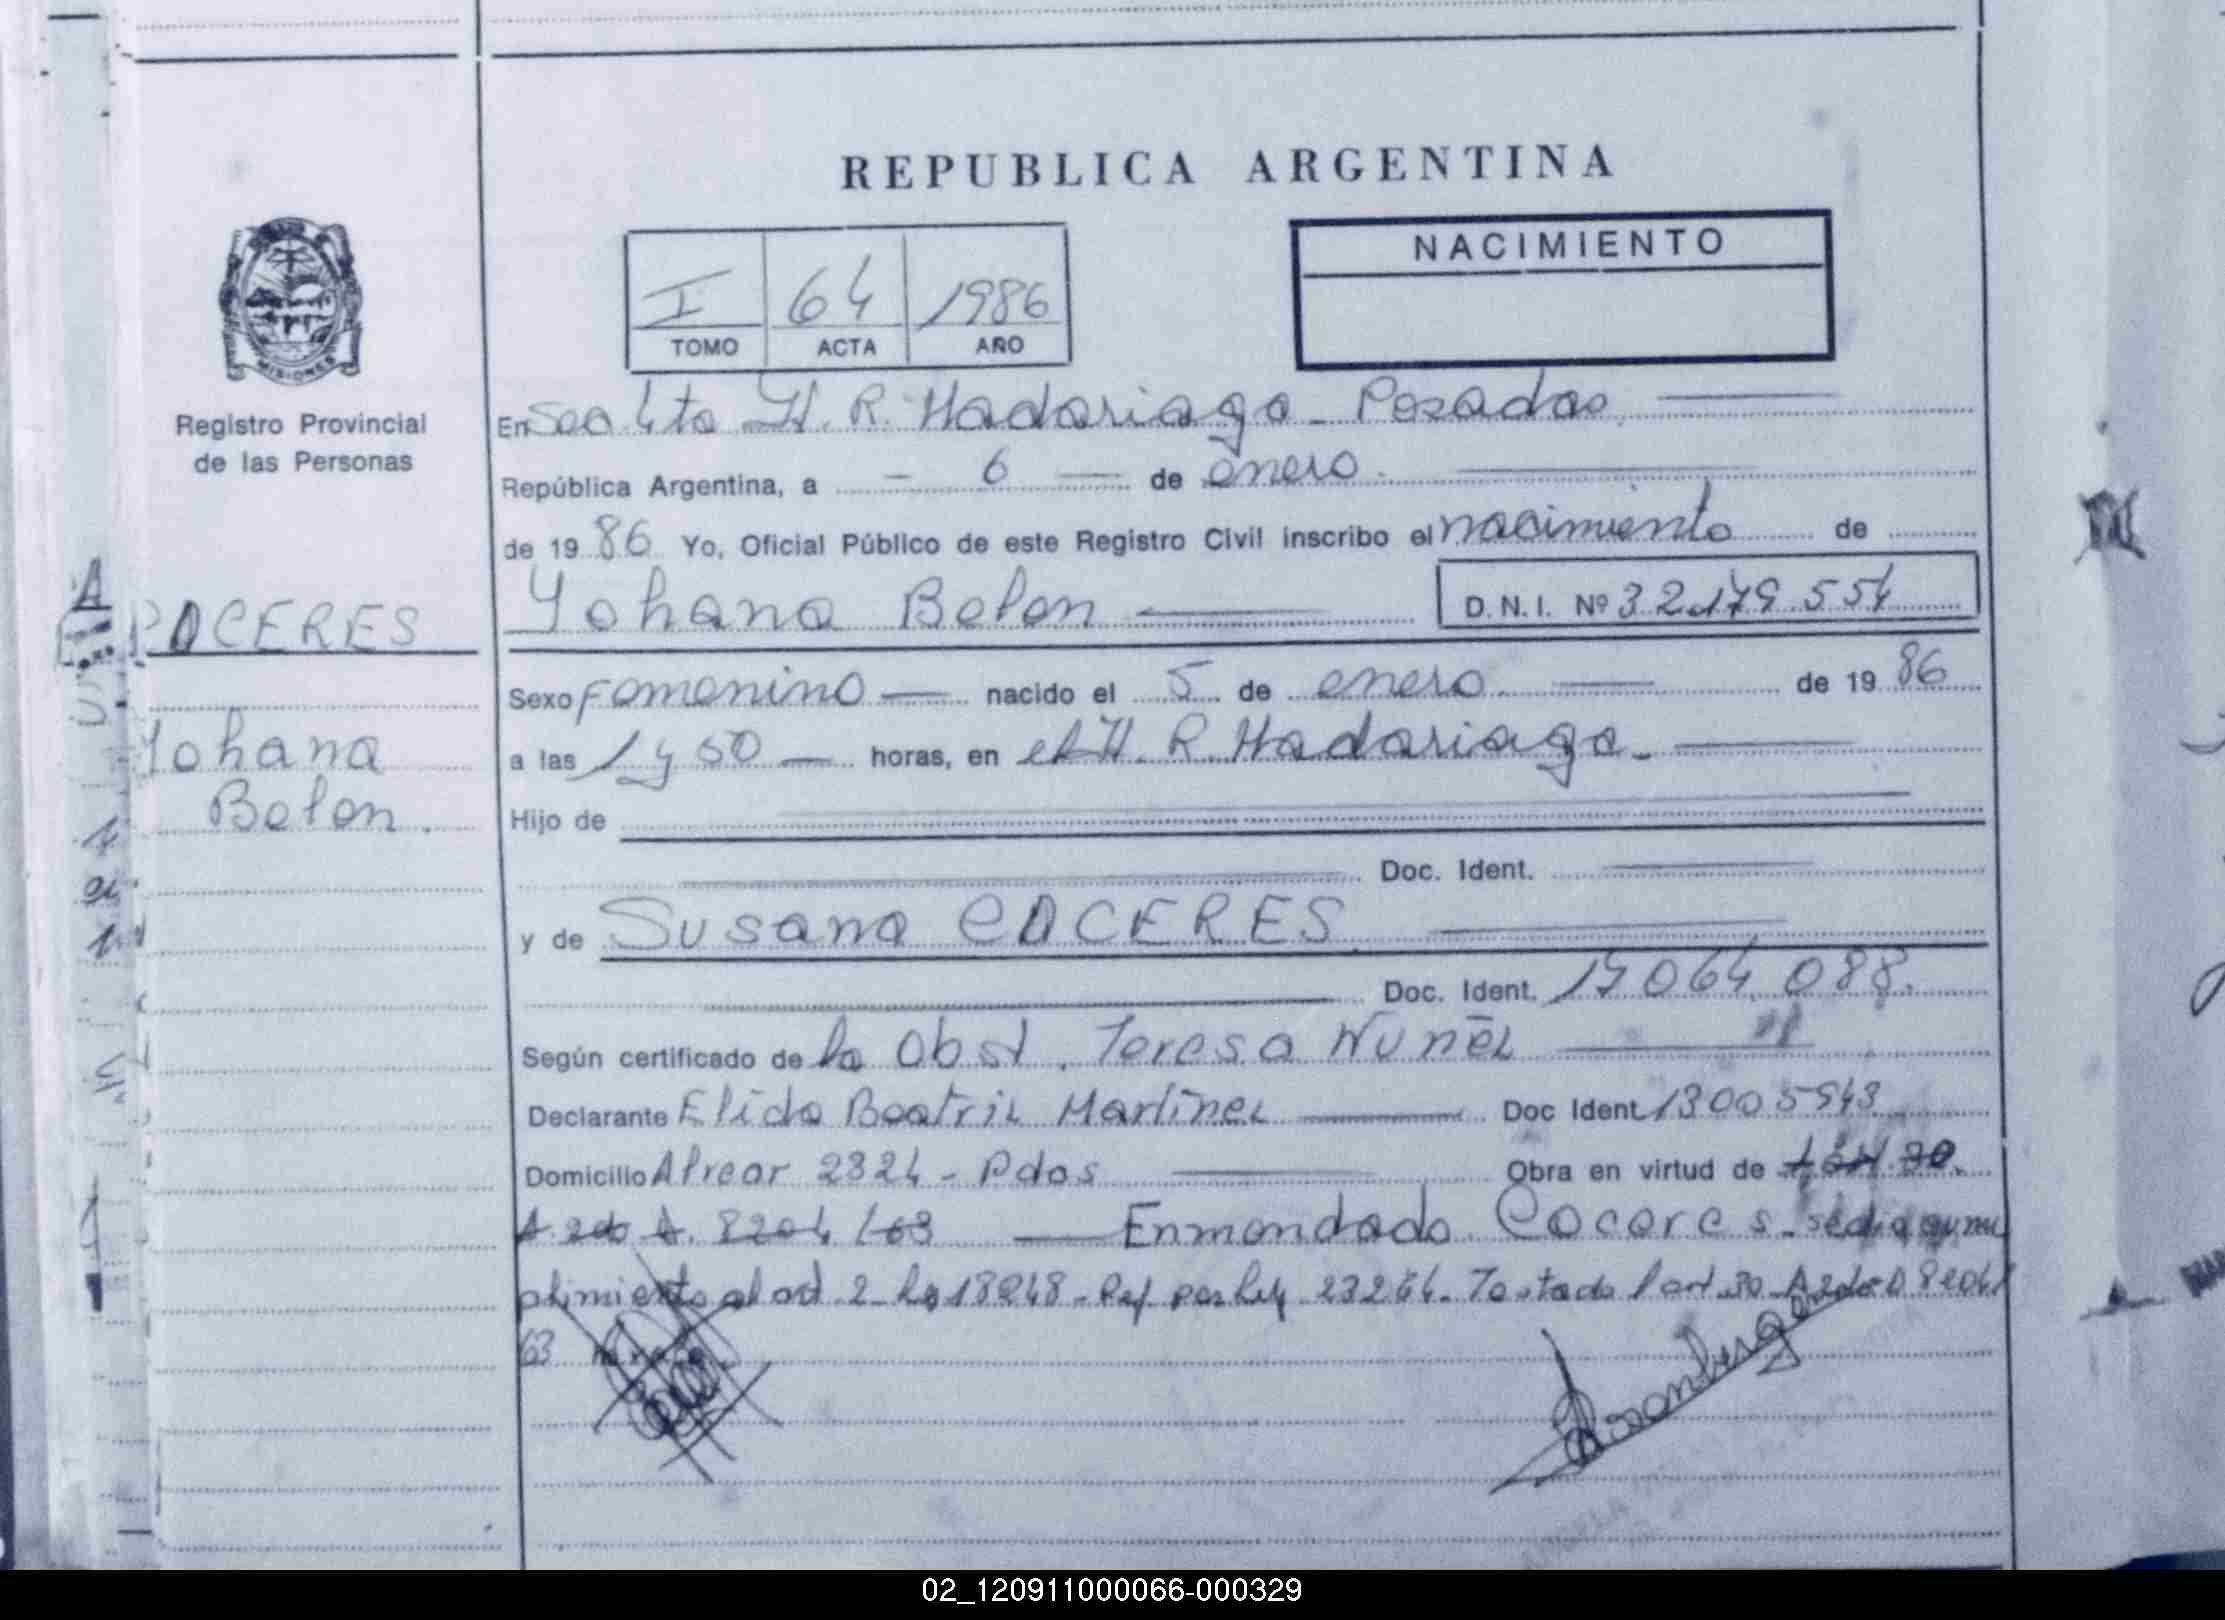 REPUBLICA ARGENTINA
I 64 1986
TOMO ACTA AÑO
NACIMIENTO
MISIONES
Registro Provincial
de las Personas
En Sec 4ta H. R. Madariaga - Posadas
República Argentina, a - 6 - de enero
de 1986 Yo, Oficial Público de este Registro Civil inscribo el nacimiento de
Yohana Belen D.N.I. Nº 32.179.554
CACERES
Yohana
Belen.
Sexo Femenino nacido el 5 de enero de 1986
a las 1 y 50 horas, en el H. R. Madariaga -
Hijo de
Doc. Ident.
y de Susana CACERES
Doc. Ident. 17 064 088.
Según certificado de la Obst. Teresa Nuñez
Declarante Elida Beatriz Martinez Doc Ident 13005543
Domicilio Alvear 2324 - Pdas Obra en virtud de
A. 2do A. 8204/63 Enmendado Caceres -
2 18248 - Ref por ley 23264 - Testado 30 A 2do D 8204/
63
02_120911000066-000329